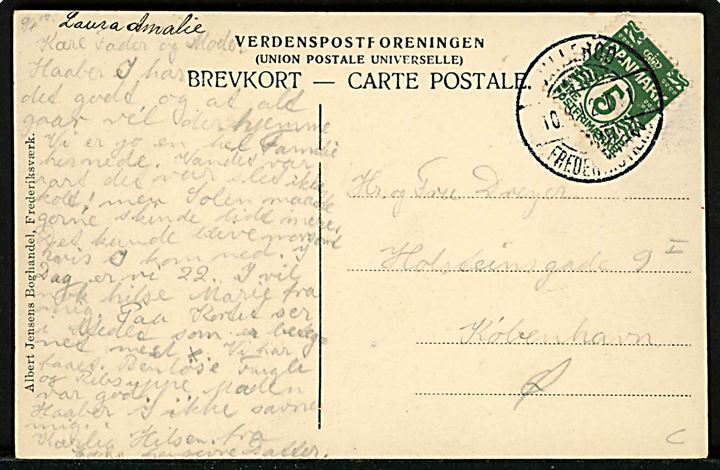 9/8 10.
Laura Amalie
Kære Fader og Moder
Haaber I har
det godt og at alt
gaar vel derhjemme
Vi er jo en hel Familie
hernede. Vandet var
rart det var slet ikke
koldt, men Solen maatte
gerne skinde lidt mere.
Det kunde blive morsomt
hvis I kom ned. I
Dag er vi 22. I vil
nok hilse Marie fra
mig. Paa Kortet ser
I Stedet som er beteg
net med x. Vi har
faaet Benløse Fugle
og Ribssuppe Maden
var god.
Haaber I ikke savne
mig.
Kærlig Hilsen fra
Datter.
VERDENSPOSTFORENINGEN
(UNION POSTALE UNIVERSELLE)
BREVKORT — CARTE POSTALE.
Albert Jensens Boghandel, Frederiksværk.
DANMARK
5
FREDERIKSVÆRK
Hr. og Fru Dreyer
Holsteinsgade 9 I
København
Ø
C